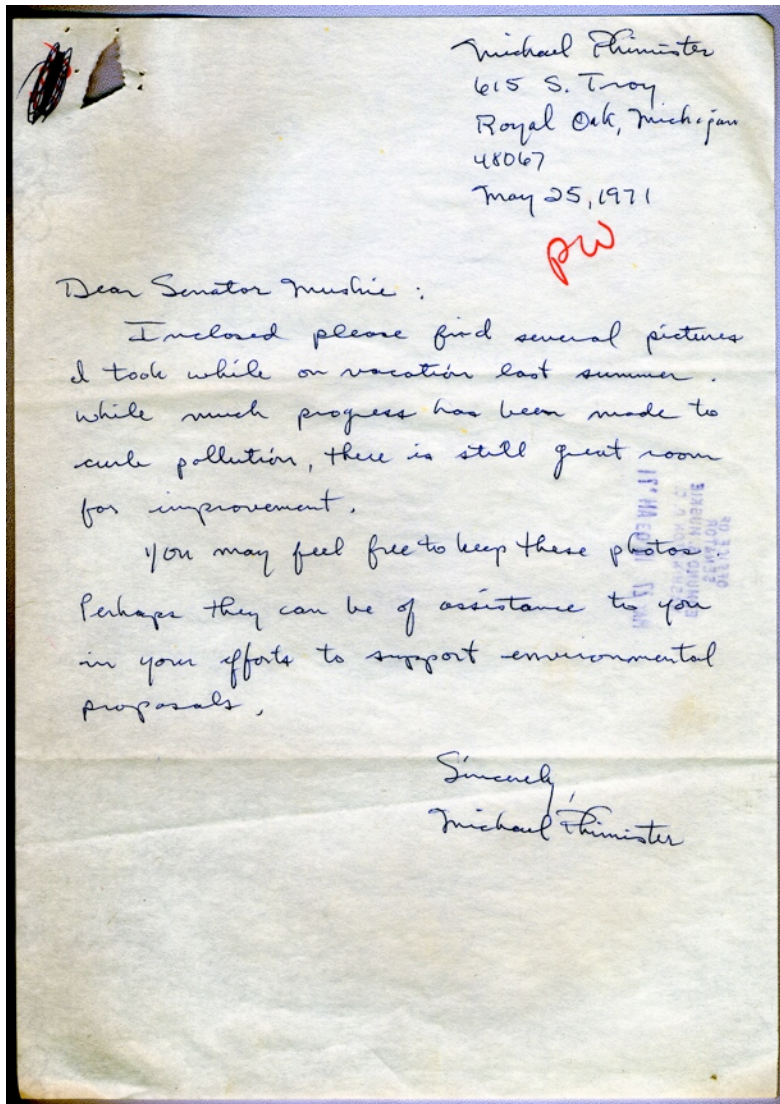 Michael Phimister
615 S. Troy
Royal Oak, Michigan
48067
May 25, 1971
PW
Dear Senator Muskie :
Inclosed please find several pictures
I took while on vacation last summer.
While much progress has been made to
curb pollution, there is still great room
for improvement.
You may feel free to keep these photos.
Perhaps they can be of assistance to you
in your efforts to support environmental
proposals.
Sincerely,
Michael Phimister
OFFICE OF
SENATOR
EDMUND MUSKIE